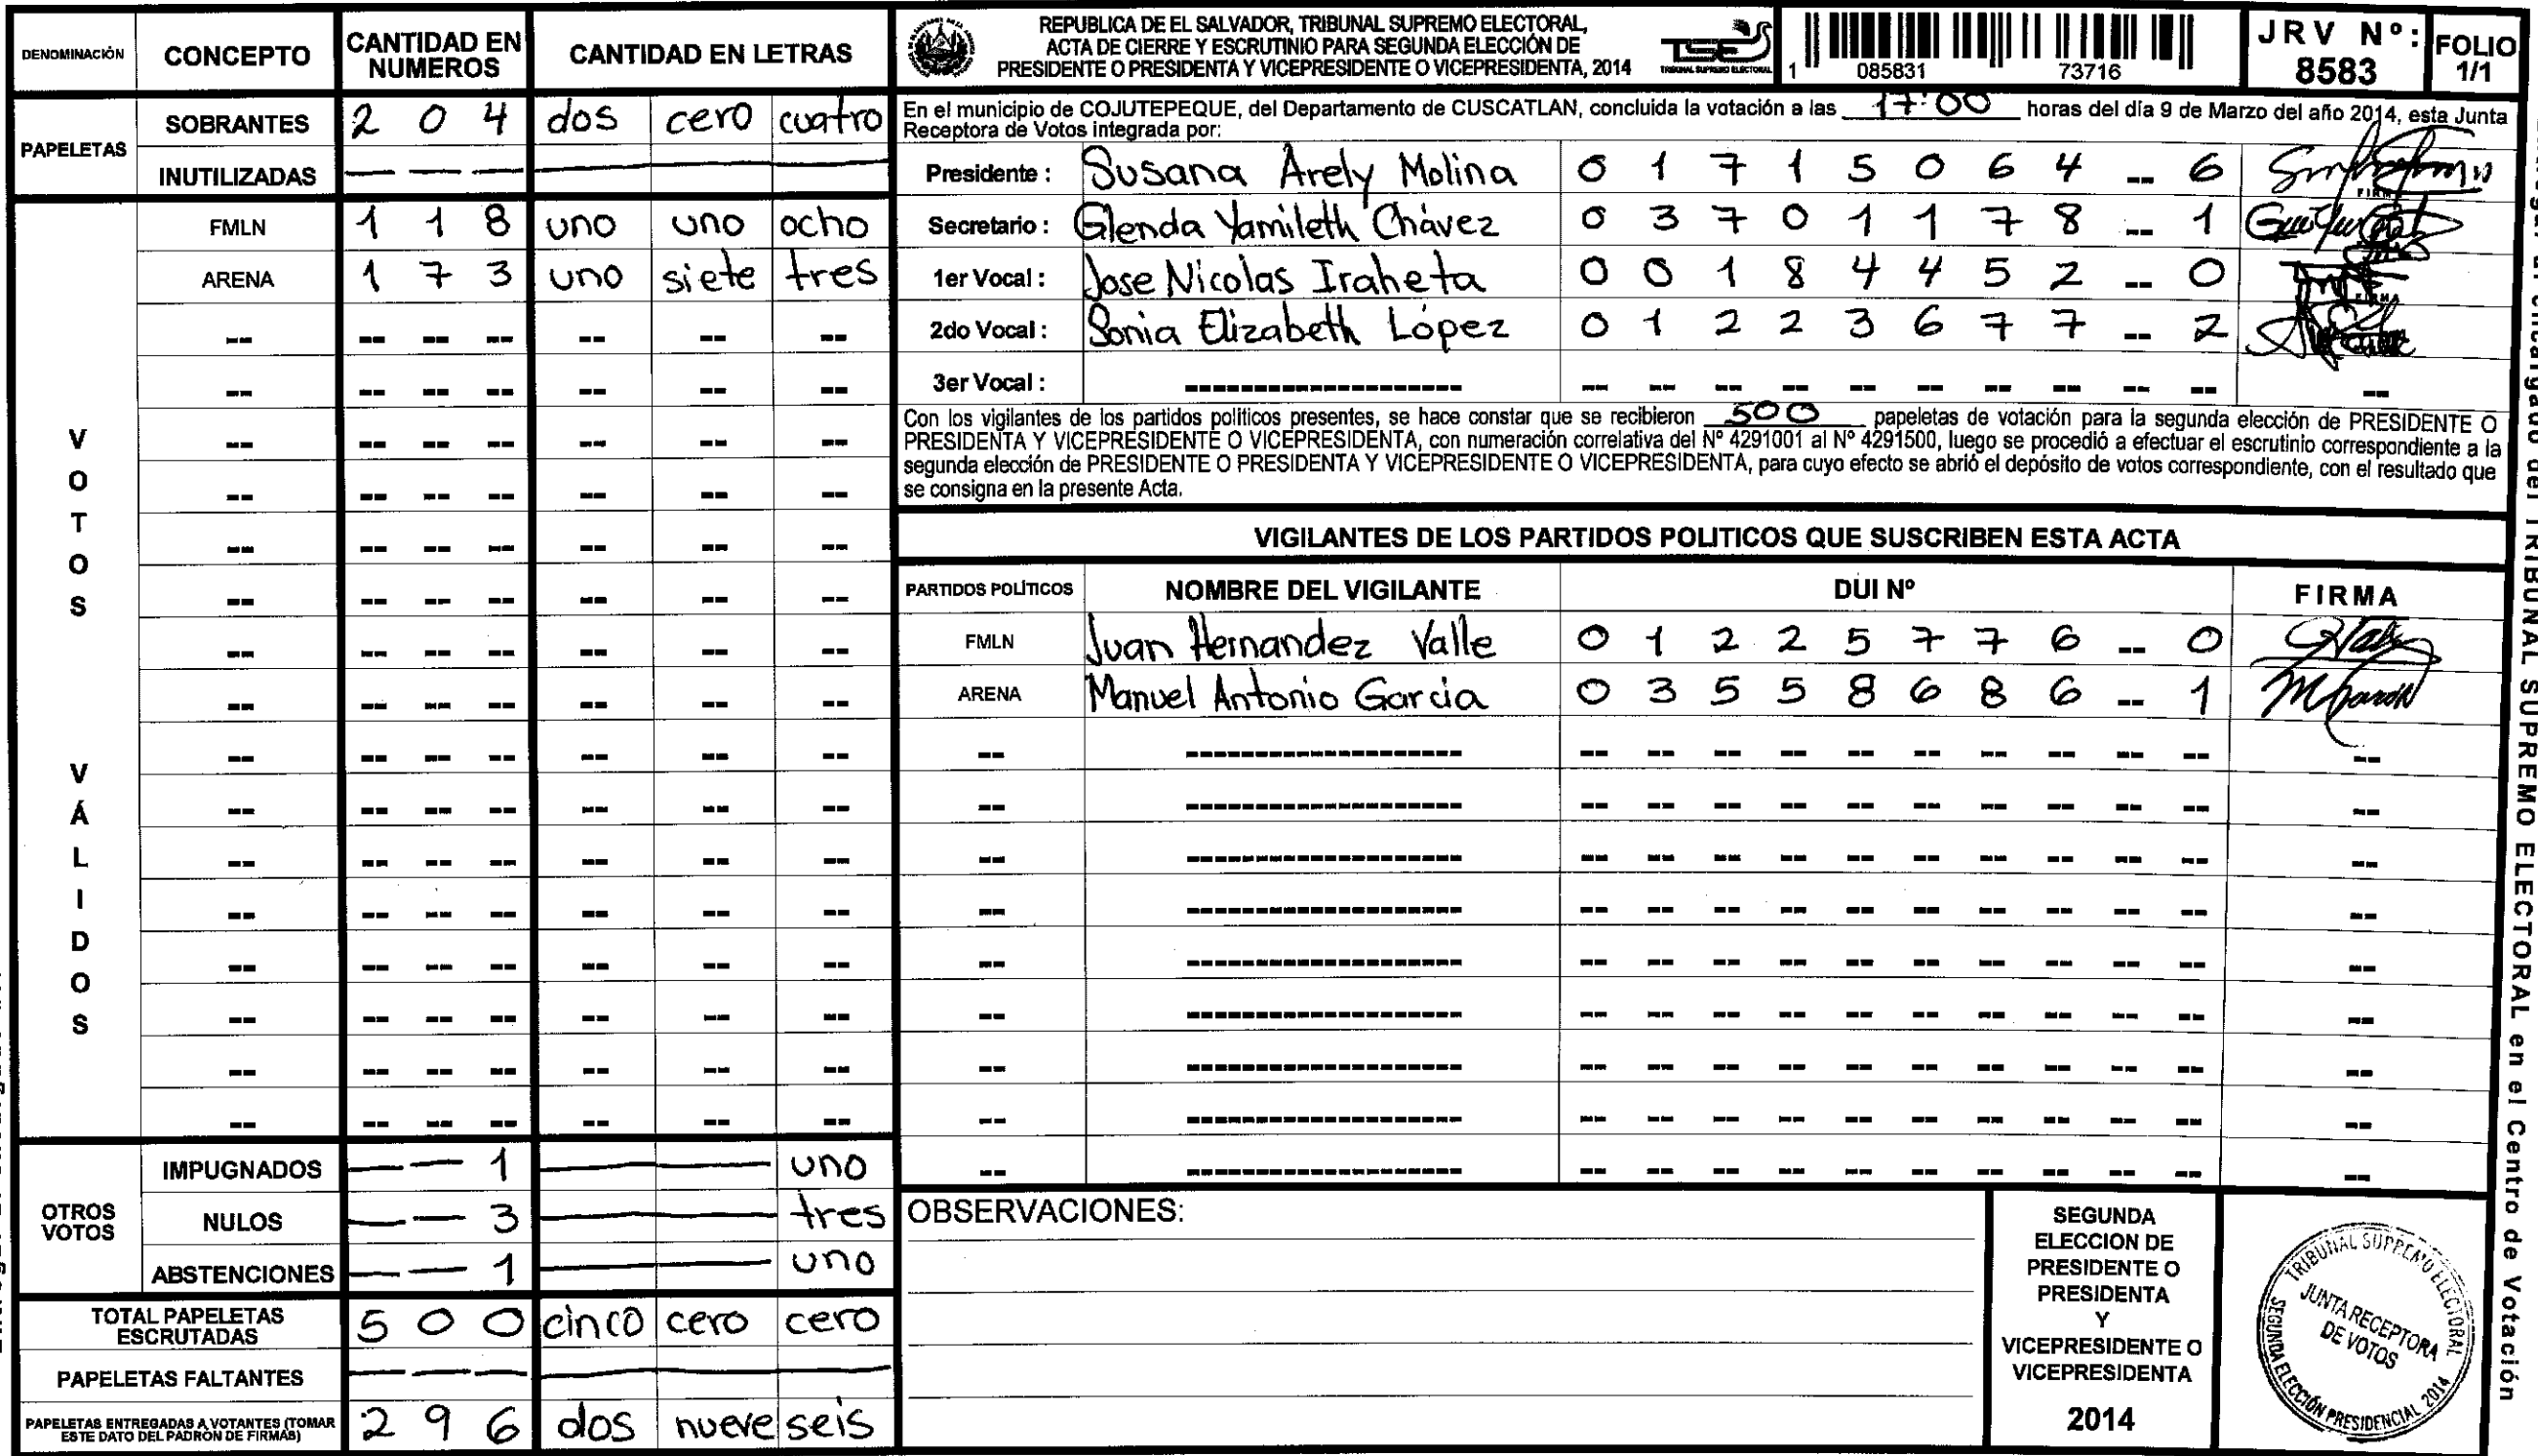 DENOMINACIÓN CONCEPTO CANTIDAD EN NUMEROS CANTIDAD EN LETRAS
PAPELETAS
SOBRANTES 2 0 4 dos cero cuatro
INUTILIZADAS — — — — — —
VOTOS VÁLIDOS
FMLN 1 1 8 uno uno ocho
ARENA 1 7 3 uno siete tres
OTROS VOTOS
IMPUGNADOS — — 1 — — uno
NULOS — — 3 — — tres
ABSTENCIONES — — 1 — — uno
TOTAL PAPELETAS ESCRUTADAS 5 0 0 cinco cero cero
PAPELETAS FALTANTES — — — — — —
PAPELETAS ENTREGADAS A VOTANTES (TOMAR
ESTE DATO DEL PADRÓN DE FIRMAS) 2 9 6 dos nueve seis
REPUBLICA DE EL SALVADOR, TRIBUNAL SUPREMO ELECTORAL,
ACTA DE CIERRE Y ESCRUTINIO PARA SEGUNDA ELECCIÓN DE
PRESIDENTE O PRESIDENTA Y VICEPRESIDENTE O VICEPRESIDENTA, 2014
TSE
TRIBUNAL SUPREMO ELECTORAL
1 085831 73716
JRV Nº: 8583
FOLIO 1/1
En el municipio de COJUTEPEQUE, del Departamento de CUSCATLAN, concluida la votación a las 17:00 horas del día 9 de Marzo del año 2014, esta Junta
Receptora de Votos integrada por:
Presidente : Susana Arely Molina 0 1 7 1 5 0 6 4 -- 6
Secretario : Glenda Yamileth Chávez 0 3 7 0 1 1 7 8 -- 1
1er Vocal : Jose Nicolas Iraheta 0 0 1 8 4 4 5 2 -- 0
2do Vocal : Sonia Elizabeth López 0 1 2 2 3 6 7 7 -- 2
3er Vocal : -- -- -- -- -- -- -- -- -- --
FIRMA
Con los vigilantes de los partidos políticos presentes, se hace constar que se recibieron 500 papeletas de votación para la segunda elección de PRESIDENTE O
PRESIDENTA Y VICEPRESIDENTE O VICEPRESIDENTA, con numeración correlativa del Nº 4291001 al Nº 4291500, luego se procedió a efectuar el escrutinio correspondiente a la
segunda elección de PRESIDENTE O PRESIDENTA Y VICEPRESIDENTE O VICEPRESIDENTA, para cuyo efecto se abrió el depósito de votos correspondiente, con el resultado que
se consigna en la presente Acta.
VIGILANTES DE LOS PARTIDOS POLITICOS QUE SUSCRIBEN ESTA ACTA
PARTIDOS POLÍTICOS NOMBRE DEL VIGILANTE DUI Nº FIRMA
FMLN Juan Hernandez Valle 0 1 2 2 5 7 7 6 -- 0
ARENA Manuel Antonio Garcia 0 3 5 5 8 6 8 6 -- 1
OBSERVACIONES:
SEGUNDA
ELECCION DE
PRESIDENTE O
PRESIDENTA
Y
VICEPRESIDENTE O
VICEPRESIDENTA
2014
TRIBUNAL SUPREMO ELECTORAL
JUNTA RECEPTORA
DE VOTOS
SEGUNDA ELECCIÓN PRESIDENCIAL 2014
encargado del TRIBUNAL SUPREMO ELECTORAL en el Centro de Votación